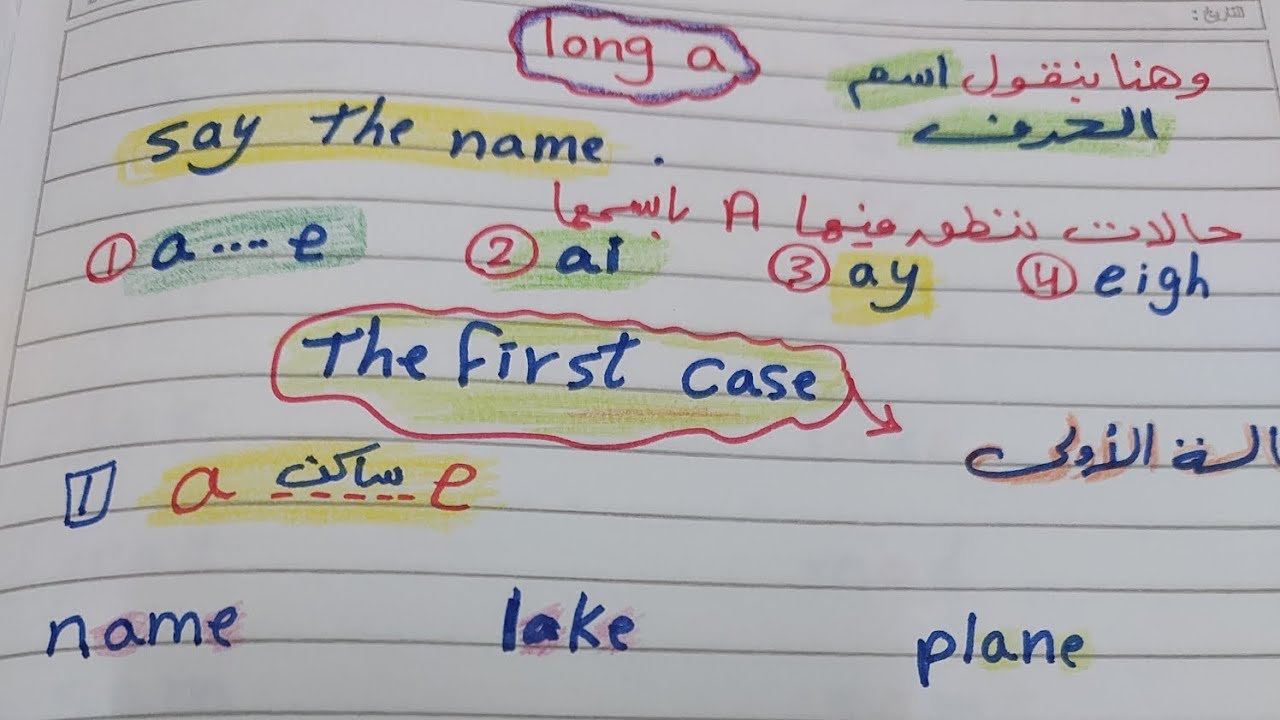 التاريخ:
long a
وهنا بنقول اسم
الحرف
say the name.
حالات ننطق فيها A باسمها
① a....e ② ai ③ ay ④ eigh
The first case
1 a ساكن e
name lake plane